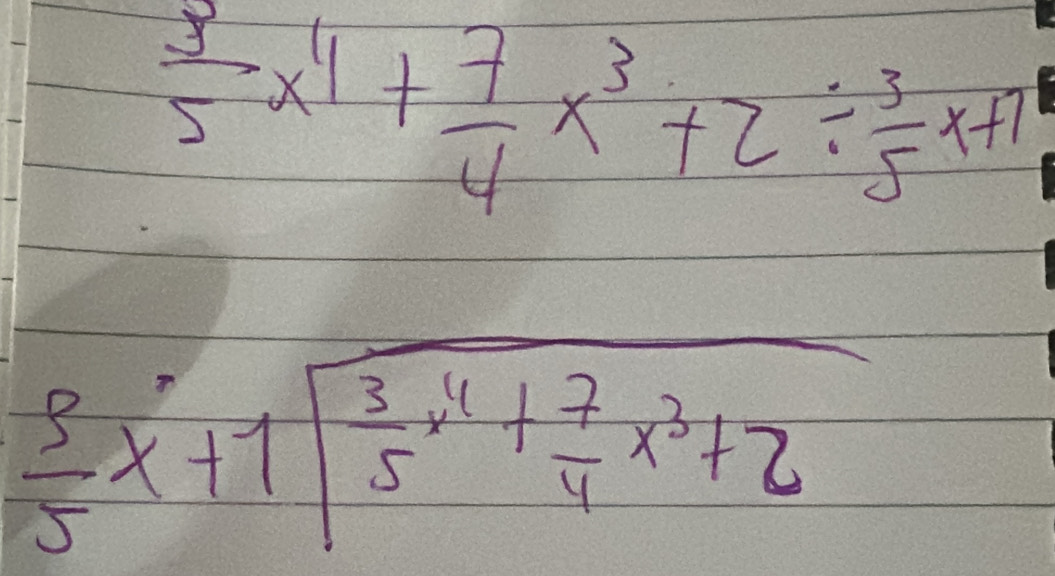 3/5 x⁴ + 7/4 x³ + 2 ÷ 3/5 x + 1
3/5 x + 1 | 3/5 x⁴ + 7/4 x³ + 2